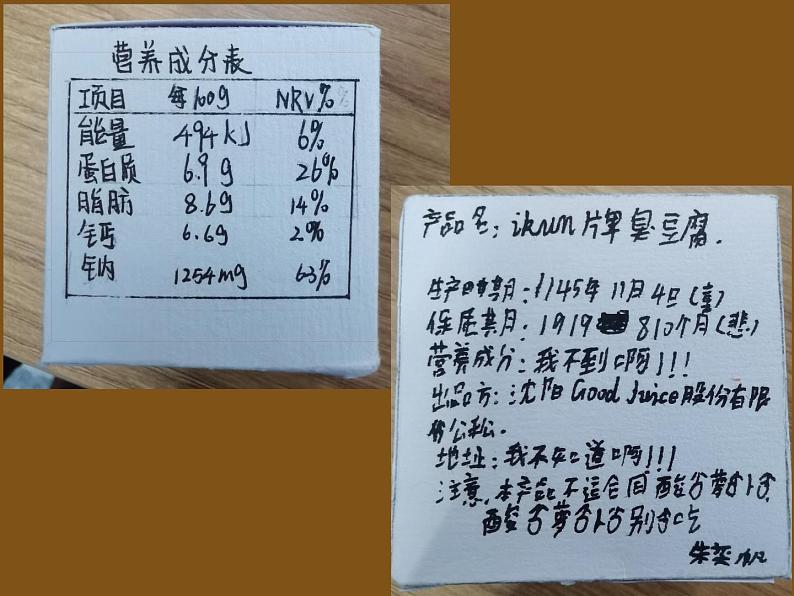 营养成分表
项目 每100g NRV%
能量 494kJ 6%
蛋白质 6.9g 26%
脂肪 8.6g 14%
钙 6.6g 2%
钠 1254mg 63%
产品名:ikun牌臭豆腐.
生产日期:1145年11月4日(喜)
保质期:1919 810个月(悲)
营养成分:我不到啊!!!
出品方:沈阳Good Juice股份有限
公私.
地址:我不知道啊!!!
注意,本产品不适合酸萝卜
酸萝卜别吃
朱奕帆